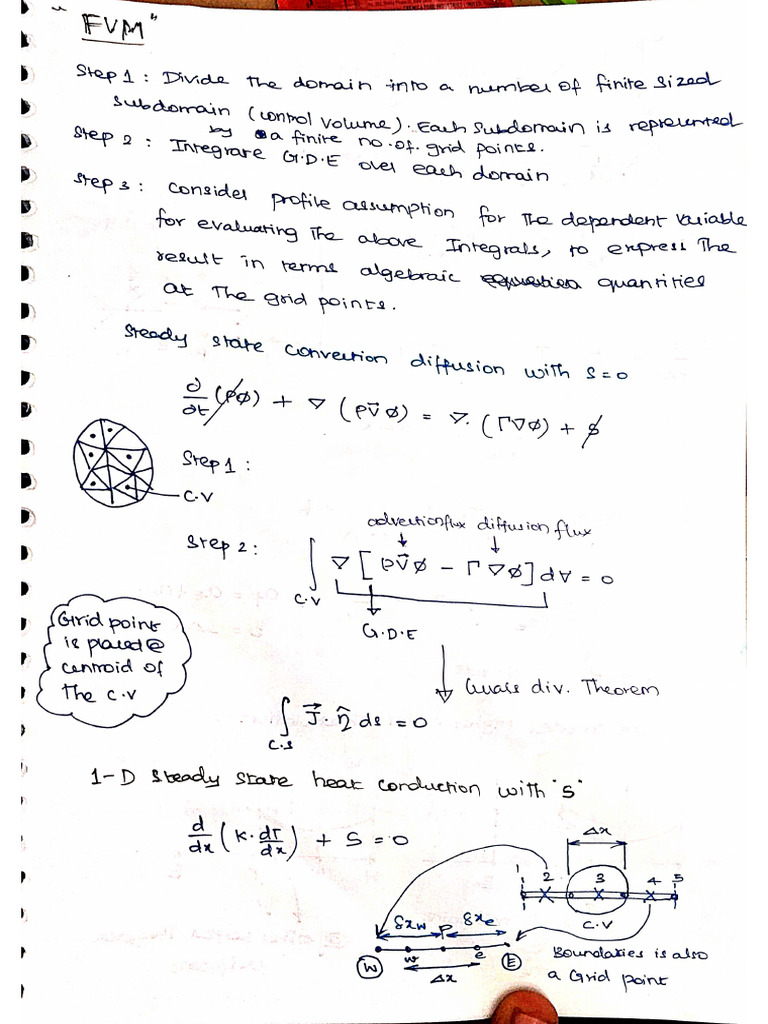 "FVM"
Step 1 : Divide The domain into a number of finite sized
subdomain (control volume). Each subdomain is represented
by a finite no. of. grid points.
Step 2 : Integrare G.D.E over each domain
Step 3 : Consider profile assumption for The dependent variable
for evaluating The above Integrals, to express The
result in terms algebraic quantities
at The grid points.
Steady state convection diffusion with S=0
∂/∂t (ρφ) + ∇ (ρv⃗φ) = ∇. (Γ∇φ) + S
Step 1 :
C.V
advection flux diffusion flux
Step 2 : ∫ ∇ [ρv⃗φ - Γ∇φ] d∀ = 0
C.V
G.D.E
Grid point
is placed @
centroid of
The C.V
Guass div. Theorem
∫ J⃗. η̂ ds = 0
C.S
1-D Steady state heat conduction with 'S'
d/dx (K. dT/dx) + S = 0
Δx
1 2 3 4 5
C.V
δxw P δxe
W w e E
Δx
Boundaries is also
a Grid point